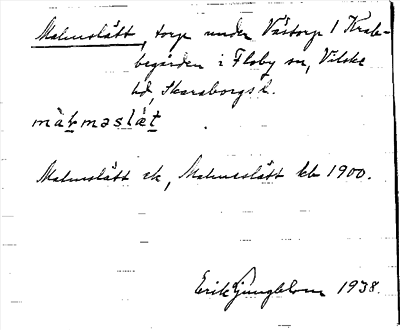 Malmslätt, torp under Västorp 1 Krab-
begården i Floby sn, Vilske
hd, Skaraborgs l.
màl̥məslæ̀t
Malmslätt ek, Malmeslätt kb 1900.
Erik Ljungblom 1938.